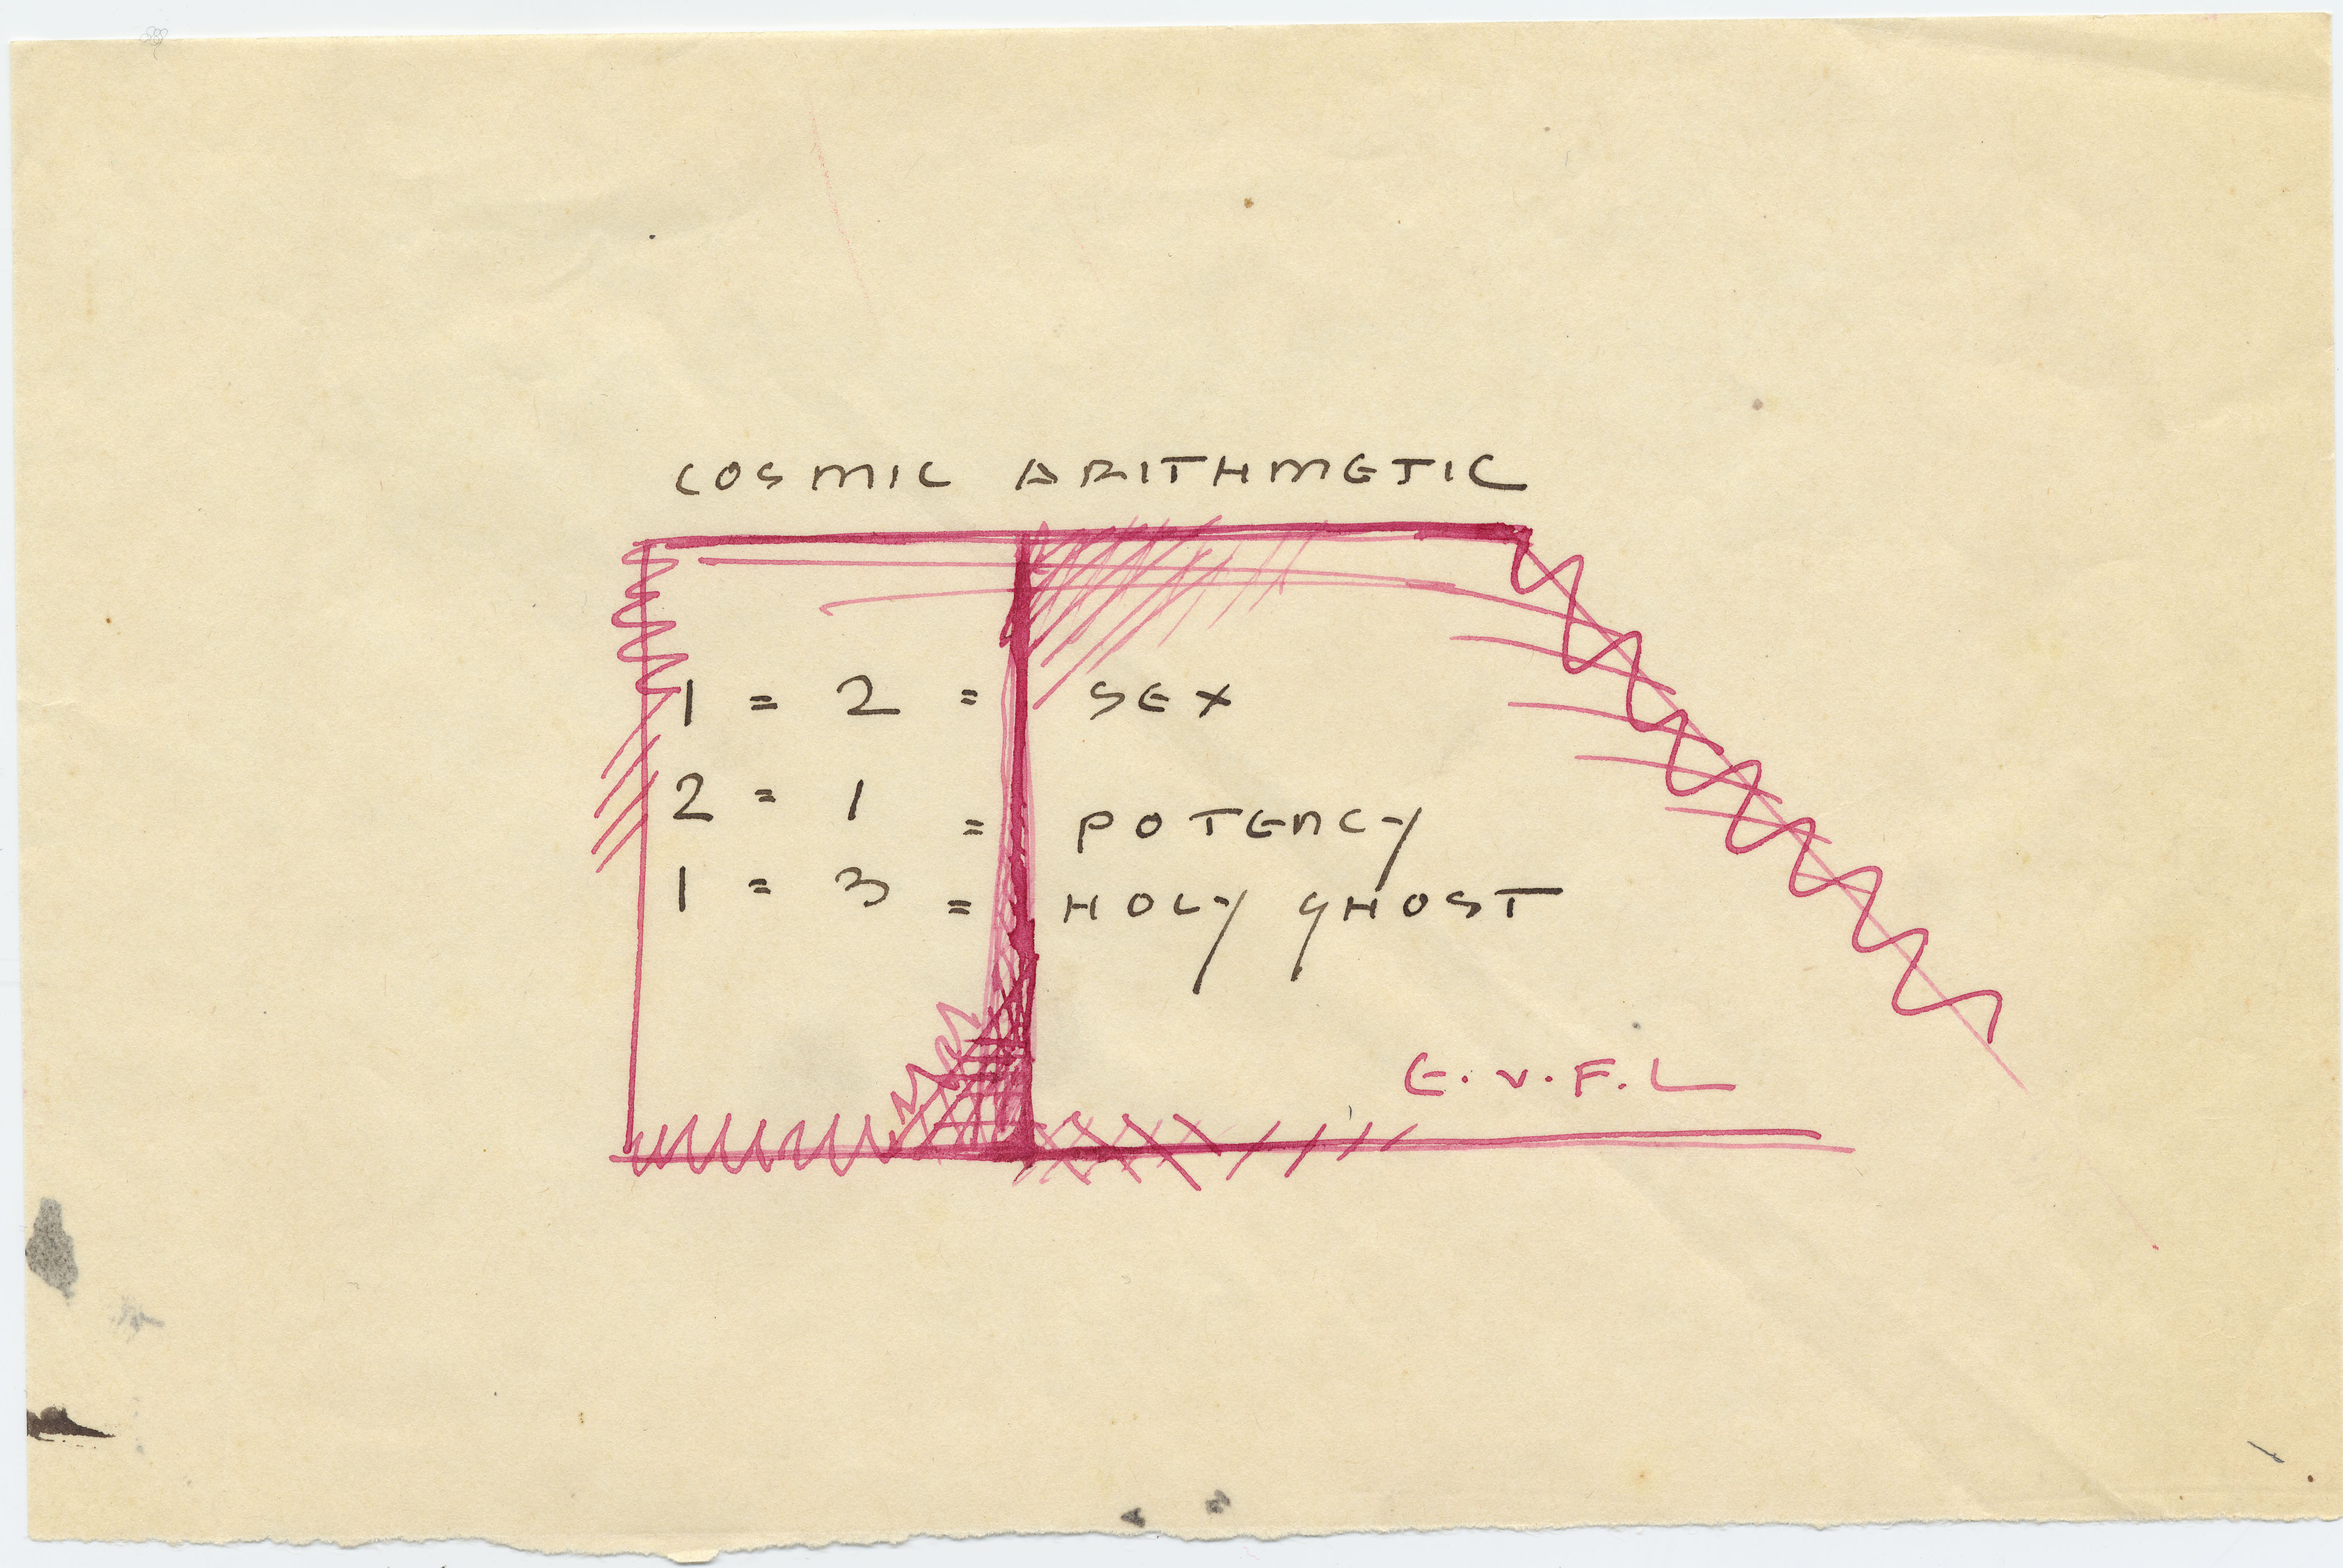 COSMIC ARITHMETIC
1 = 2 = SEX
2 = 1 = POTENCY
1 = 3 = HOLY GHOST
E.V.F.L